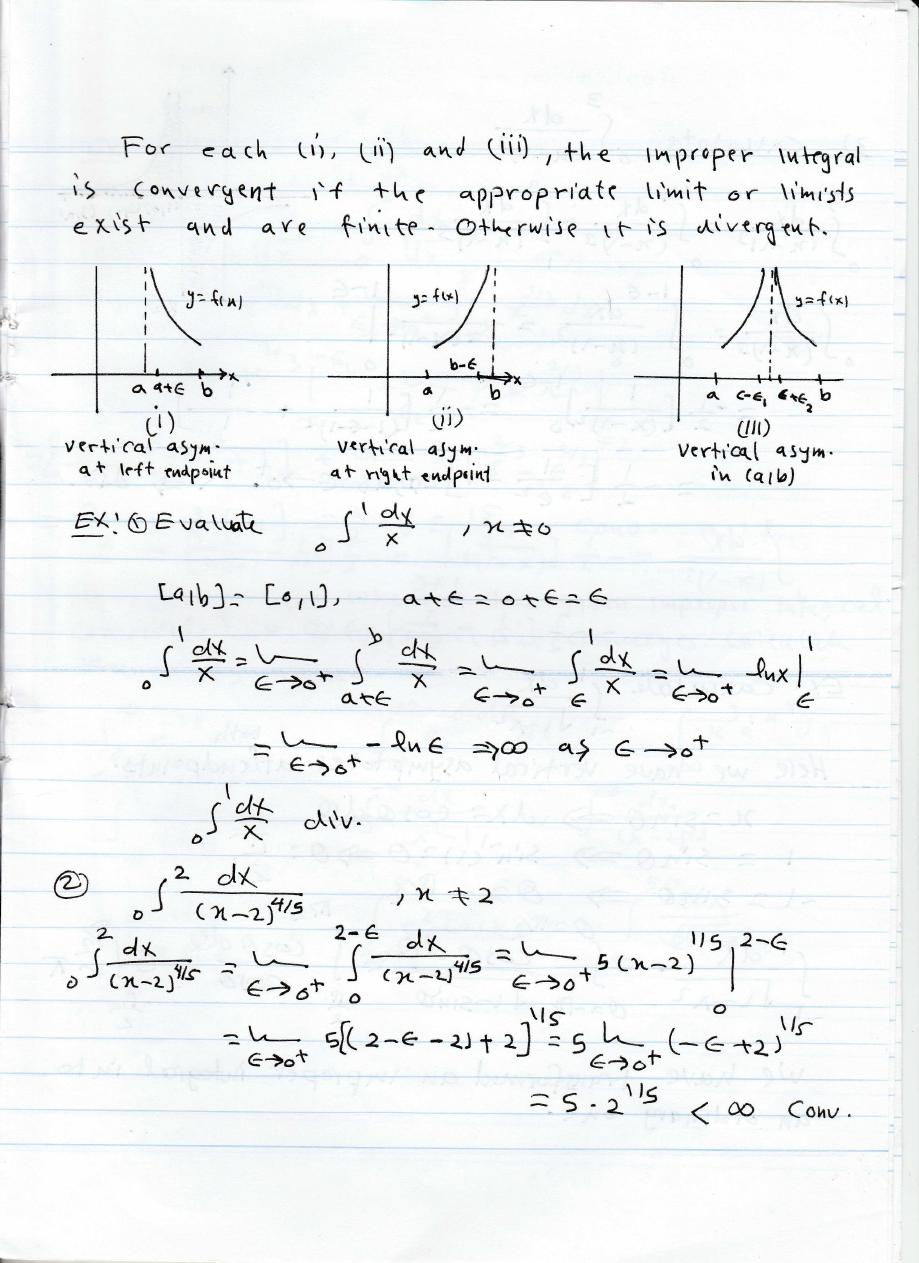 For each (i), (ii) and (iii), the improper integral
is convergent if the appropriate limit or limists
exist and are finite. Otherwise it is divergent.
y=f(x) y=f(x) y=f(x)
a a+ε b x a b-ε b x a c-ε₁ c+ε₂ b
(i) (ii) (iii)
vertical asym. vertical asym. vertical asym.
at left endpoint at right endpoint in (a,b)
EX! ① Evaluate ₀∫¹ dx/x , x ≠ 0
[a,b] = [0,1], a+ε = 0+ε = ε
₀∫¹ dx/x = lim_{ε→0⁺} ∫_{a+ε}^{b} dx/x = lim_{ε→0⁺} ∫_{ε}^{1} dx/x = lim_{ε→0⁺} ln x |_{ε}^{1}
= lim_{ε→0⁺} - ln ε ⇒ ∞ as ε → 0⁺
₀∫¹ dx/x div.
② ₀∫² dx/(x-2)^{4/5} , x ≠ 2
₀∫² dx/(x-2)^{4/5} = lim_{ε→0⁺} ∫_{0}^{2-ε} dx/(x-2)^{4/5} = lim_{ε→0⁺} 5(x-2)^{1/5} |_{0}^{2-ε}
= lim_{ε→0⁺} 5[(2-ε-2)+2]^{1/5} = 5 lim_{ε→0⁺} (-ε+2)^{1/5}
= 5 · 2^{1/5} < ∞ Conv.